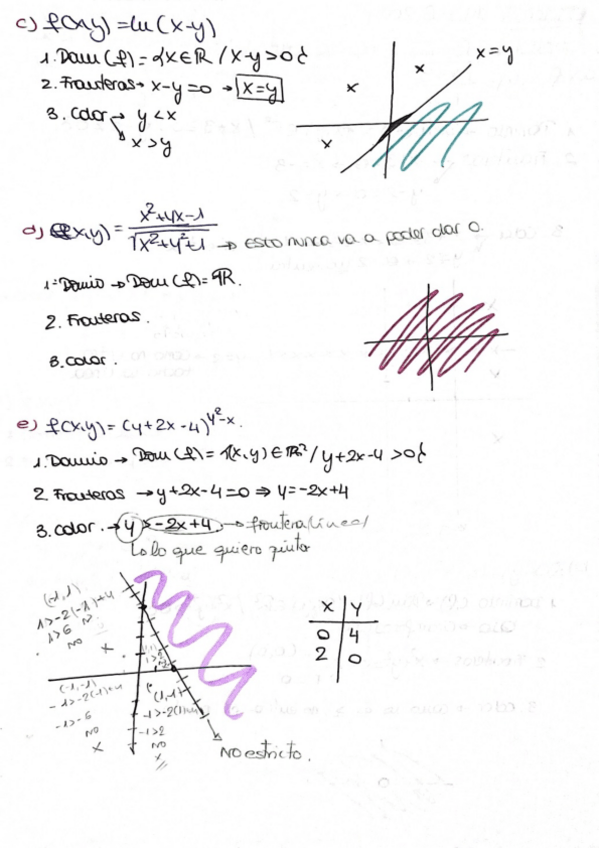 c) f(x,y)=ln(x-y)
1. Dom(f)={x∈ℝ / x-y>0}
2. Fronteras → x-y=0 → x=y
3. Color → y<x
↘ x>y
x=y
x
x
x
d) f(x,y)= x²+4x-1 / √x²+y²+1 → esto nunca va a poder dar 0
1º Domio → Dom(f)=ℝ.
2. Fronteras.
3. Color.
e) f(x,y)=(y+2x-4)^y²-x.
1. Dominio → Dom(f)={(x,y)∈ℝ²/y+2x-4>0}
2. Fronteras → y+2x-4=0 ⇒ y=-2x+4
3. Color. → y > -2x+4. → frontera/línea/
↳ lo que quiero pinto
(-1,1)
1>-2(-1)+4
1>6
NO
x
x y
0 4
2 0
(-1,-1)
-1>-2(-1)+4
-1>-6
NO
x
-1>2
NO
x
No estricto.